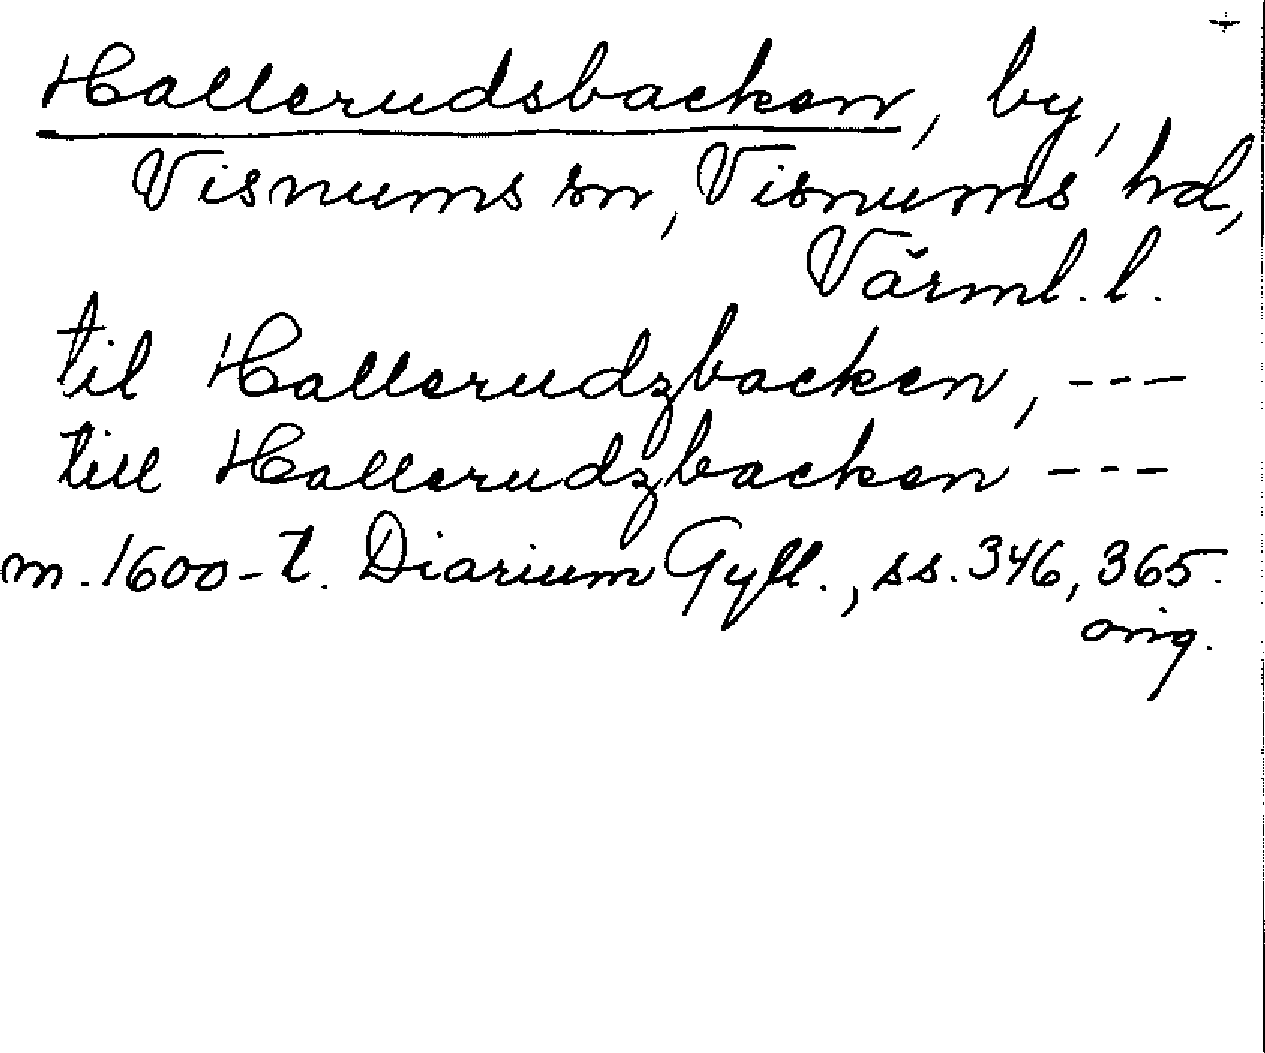 Hallerudsbacken, by,
Visnums sn, Visnums hd,
Värml. l.
til Hallerudzbacken, ---
till Hallerudzbacken ---
m. 1600-t. Diarium Gyll., ss. 346, 365.
orig.